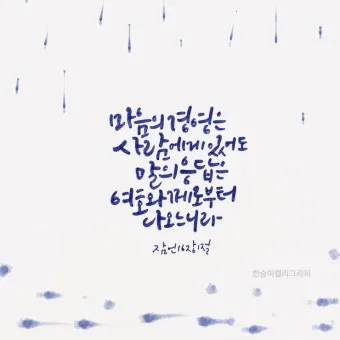 마음의 경영은
사람에게 있어도
말의 응답은
여호와께로부터
나오느니라
잠언16장1절
한승아캘리그라피